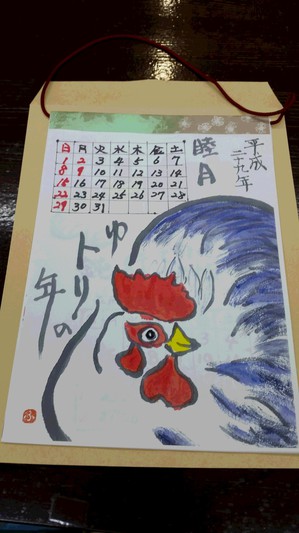 平成
二十九年
睦月
日 月 火 水 木 金 土
1 2 3 4 5 6 7
8 9 10 11 12 13 14
15 16 17 18 19 20 21
22 23 24 25 26 27 28
29 30 31
ゆ
トリの
年
ふ